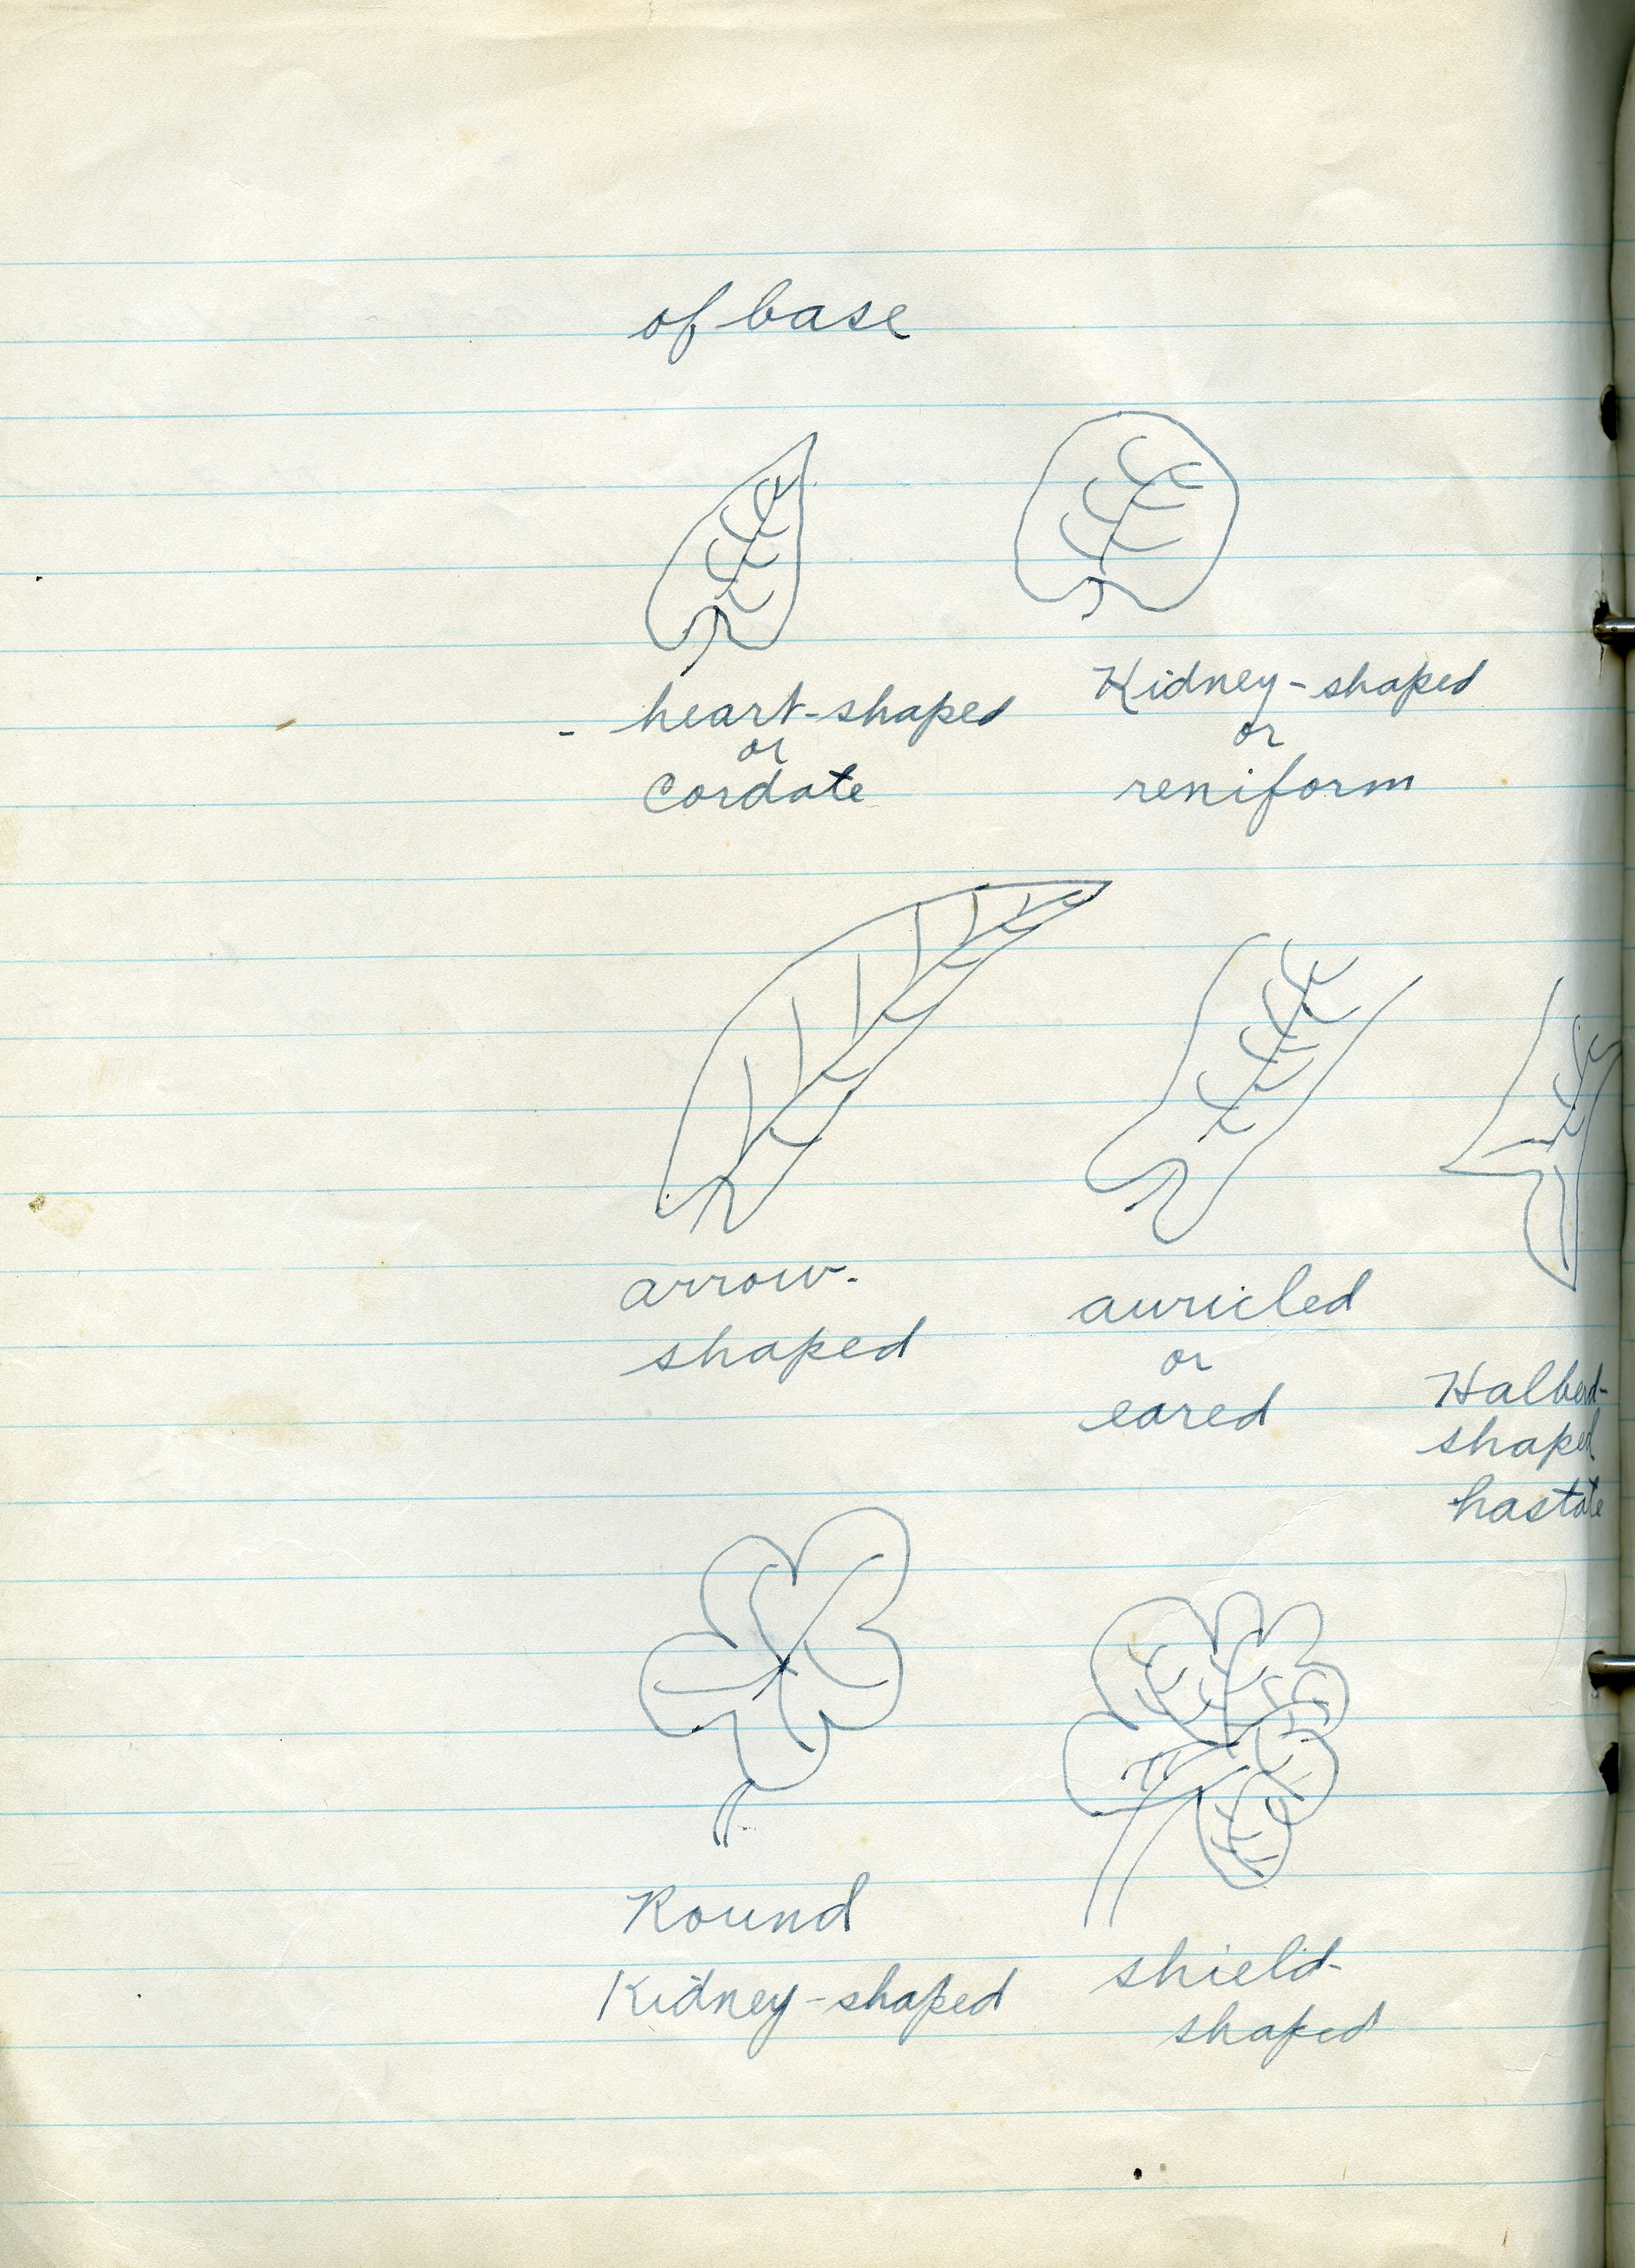 of base
- heart-shaped
or
Cordate
Kidney-shaped
or
reniform
arrow-
shaped
auricled
or
eared
Halberd-
shaped
hastate
Round
Kidney-shaped
shield-
shaped